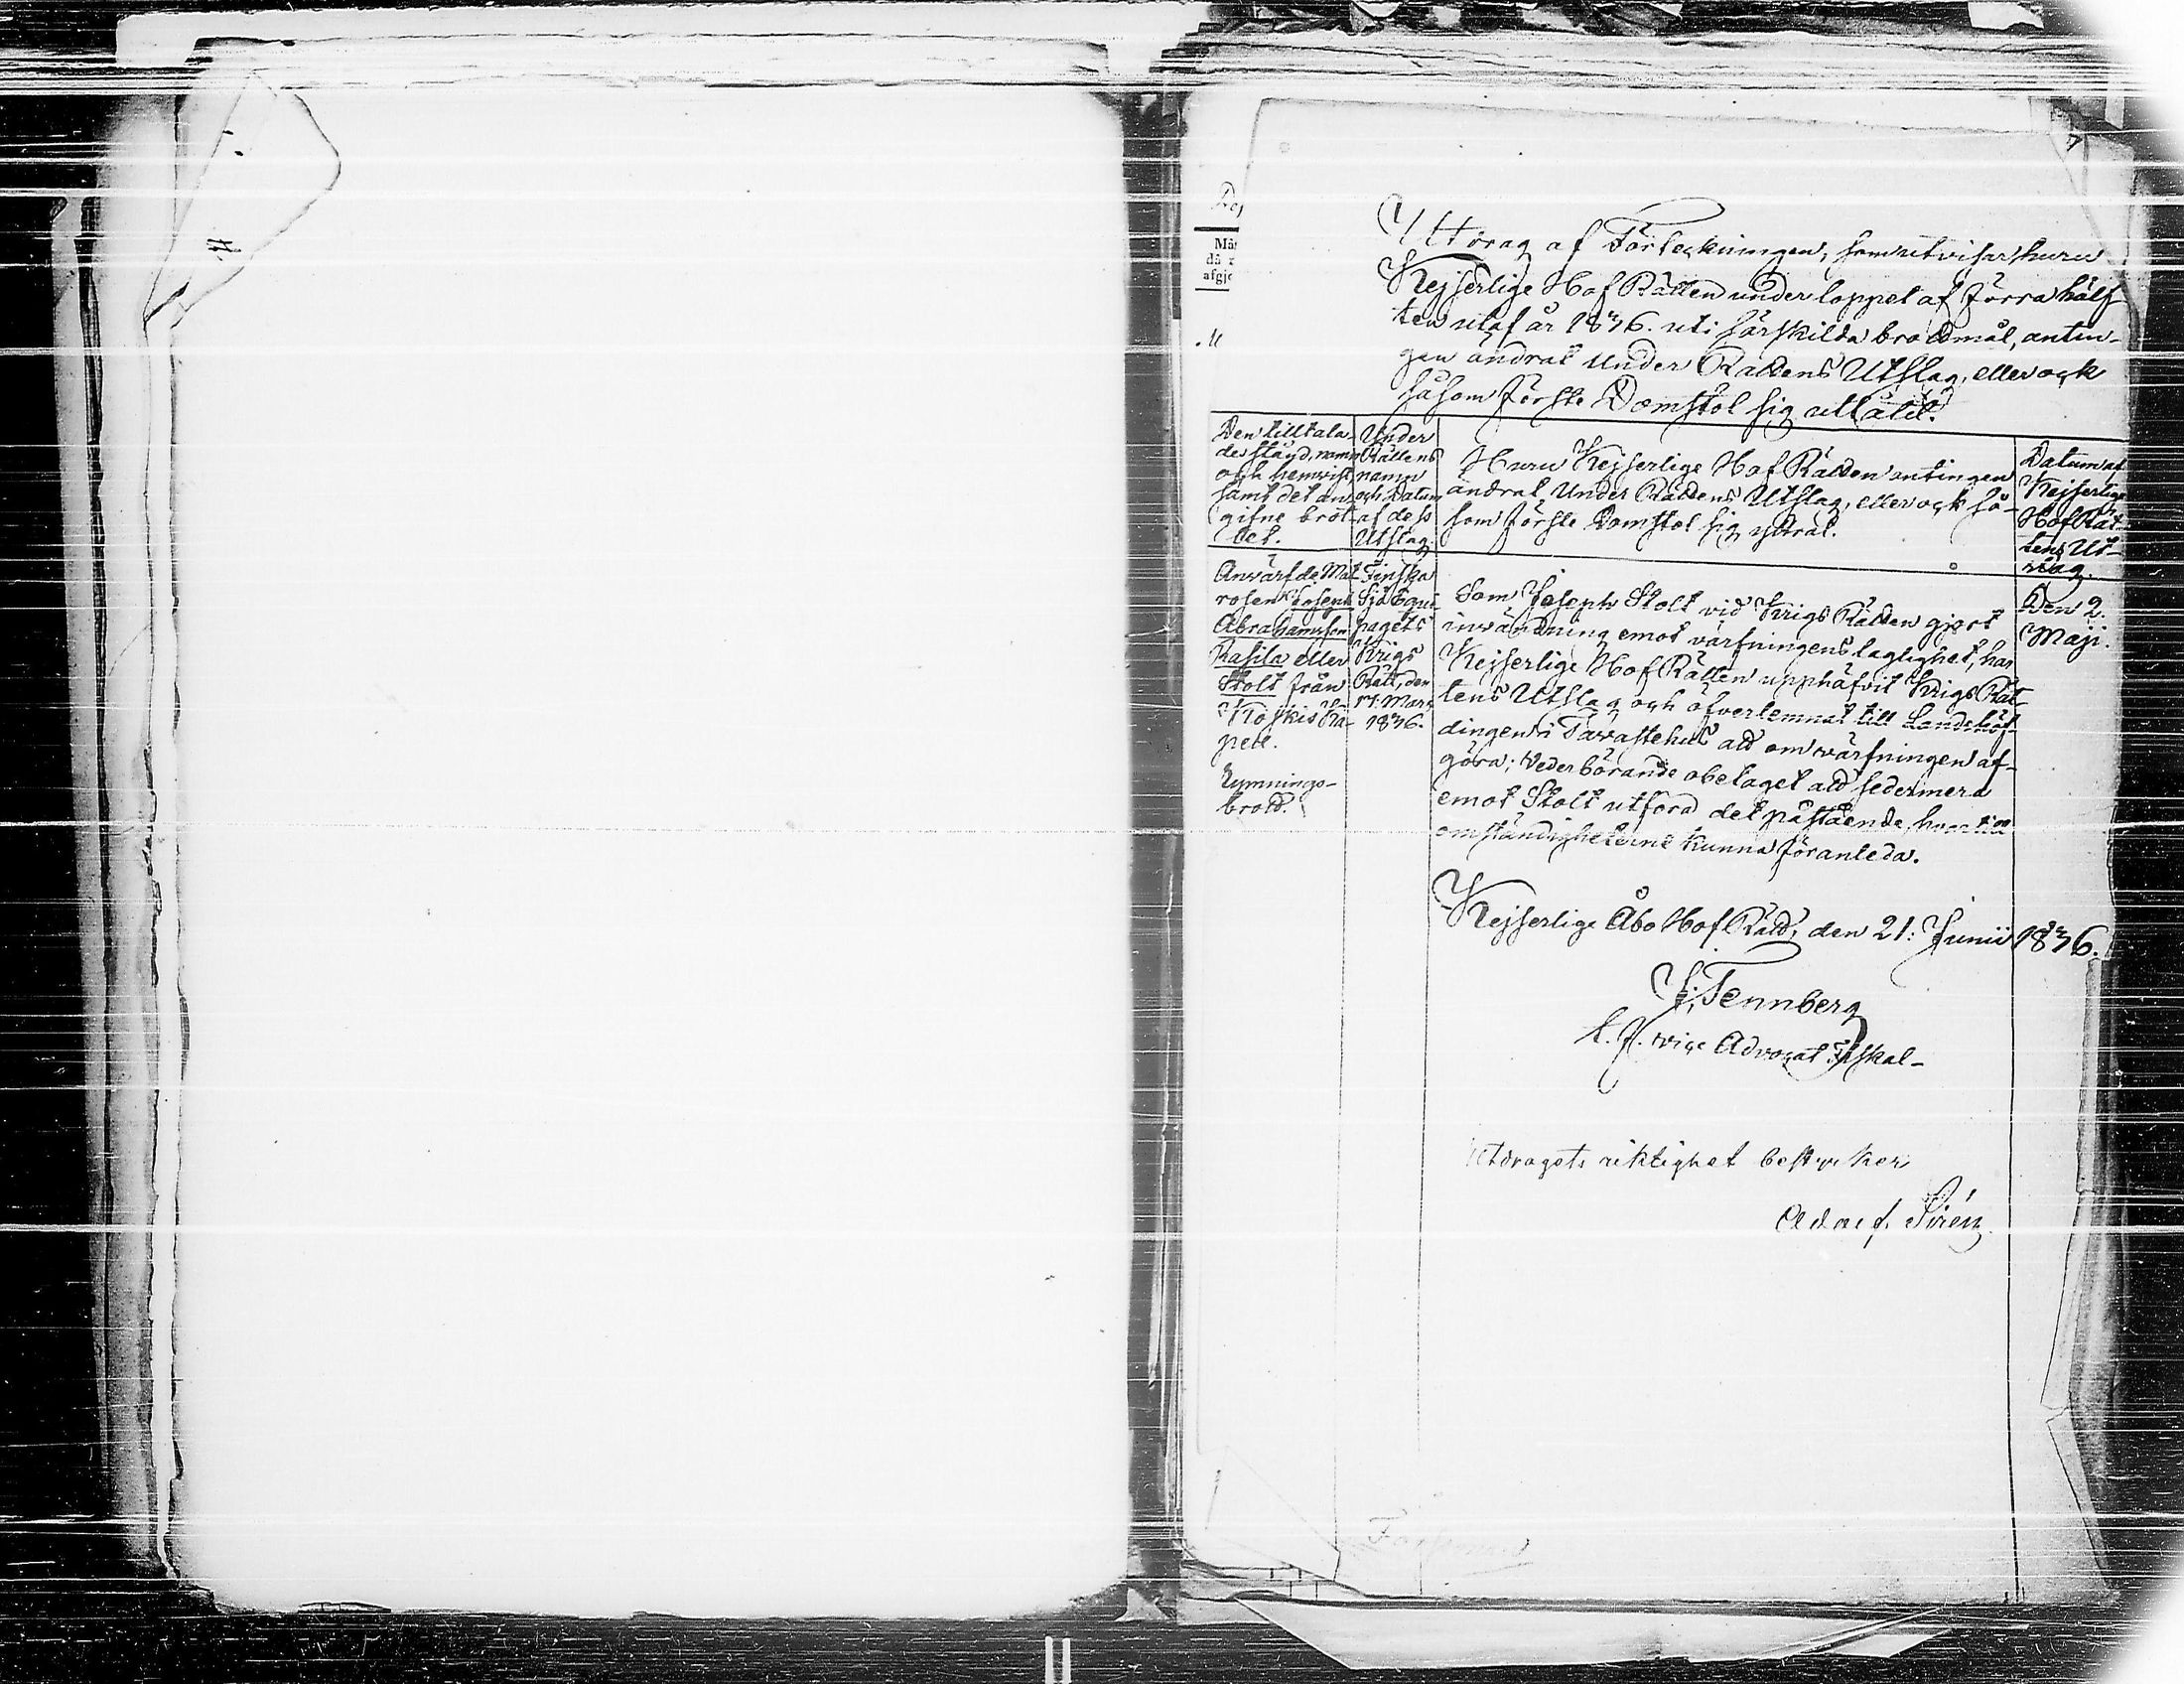 Utdrag af Förteckningen, som utvisar huru
Kejserlige Hof Rätten under loppet af förra hälf
ten utaf år 1836. uti särskilda brottmål, antin-
gen ändrat Under Rättens Utslag, eller ock
såsom förste Domstol sig utlåtit.
Den tilltala-
des stånd, namn
och hemvist,
samt det an-
gifne brot-
tet.
Under
Rättens
namn
och Datum
af dess
Utslag.
Huru Kejserlige Hof Rätten antingen
ändrat Under Rättens Utslag, eller ock så-
som förste Domstol sig yttrat.
Datum af
Kejserlige
Hof Rät-
tens Ut-
slag.
Anvärfde Mat
rosen Joseph
Abrahamsson
Kasila eller
Stolt från
Koskis Ka-
pell.
Rymnings-
brott.
Finska
Sjö Equi
pagets
Krigs
Rätt, den
17. Mars
1836.
Som Joseph Stolt vid Krigs Rätten gjort
invändning emot värfningens laglighet, har
Kejserlige Hof Rätten upphäfvit Krigs Rät
tens Utslag och öfverlemnat till Landshöf-
dingen i Tavastehus att om värfningen af-
göra; Vederbörande obetaget att sedermera
emot Stolt utföra det påstående, hvartill
omständigheterne kunna föranleda.
Den 2.
Maji.
Kejserlige Åbo Hof Rätt, den 21. Junii 1836.
J. Tennberg
t. f. vice Advocat Fiskal
Utdragets riktighet bestyrker
Adolf. Sirén